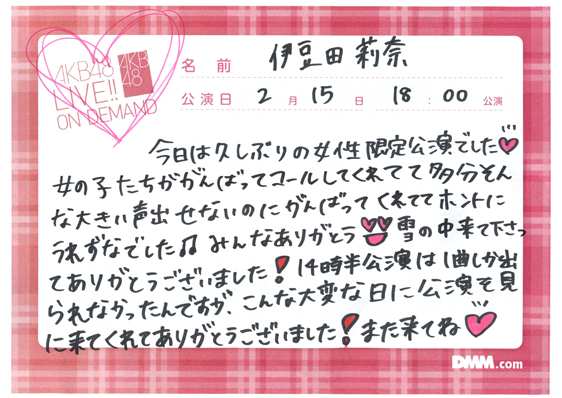 AKB48
LIVE!!
ON DEMAND
AKB
48
名前 伊豆田莉奈
公演日 2月15日 18:00公演
今日は久しぶりの女性限定公演でした
女の子たちががんばってコールしてくれてて多分そん
な大きい声出せないのにがんばってくれててホントに
うれずなでした♫みんなありがとう 雪の中来て下さっ
てありがとうございました!14時半公演は1曲しか出
られなかったんですが、こんな大変な日に公演を見
に来てくれてありがとうございました!また来てね
DMM.com